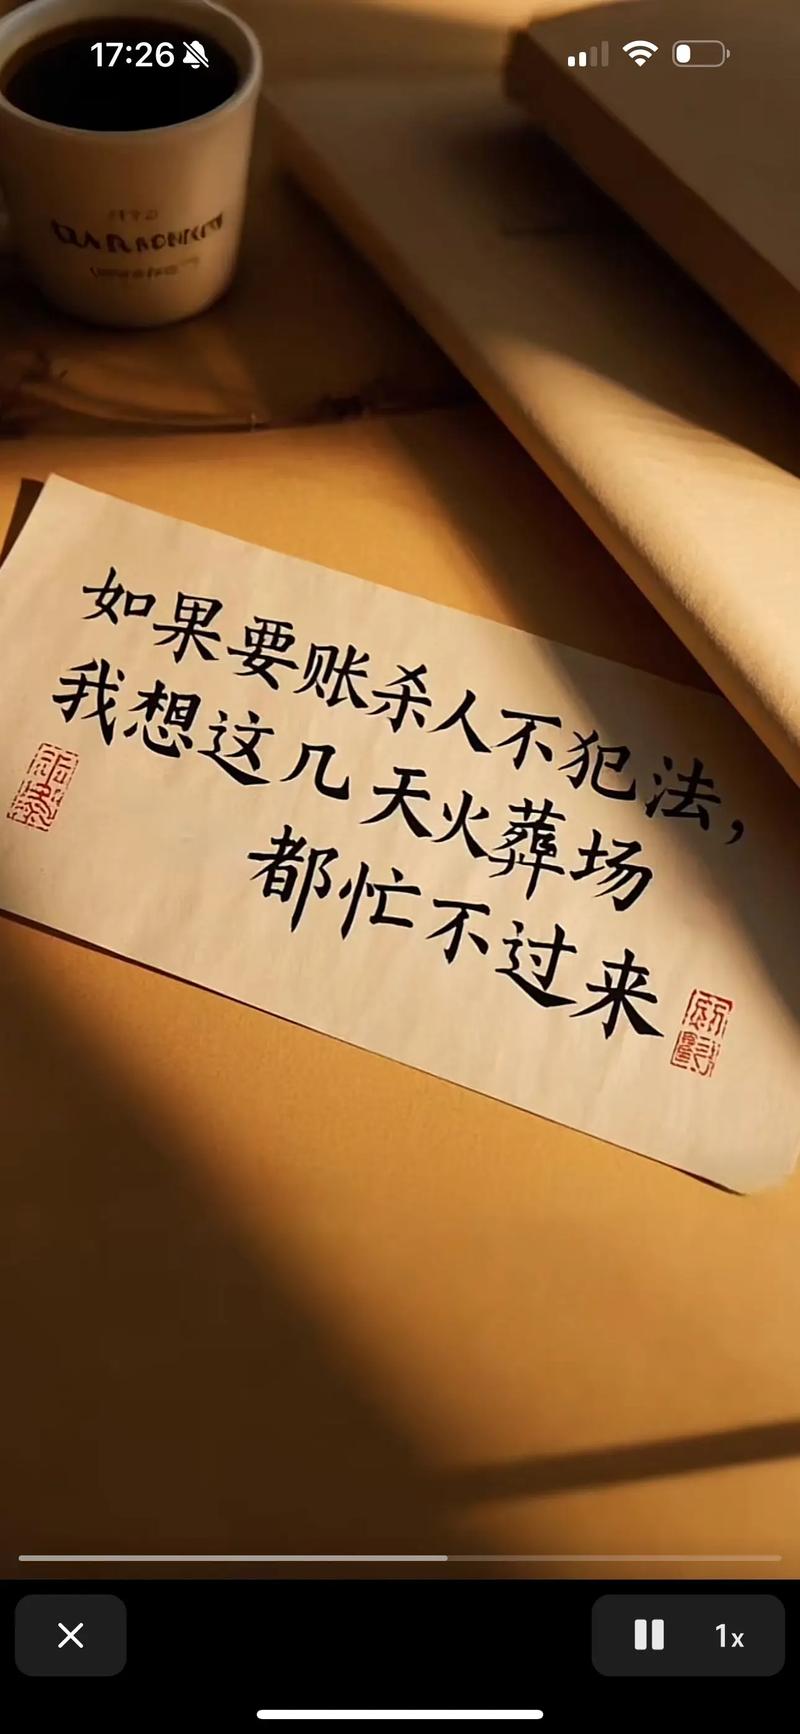 17:26
如果要账杀人不犯法,
我想这几天火葬场
都忙不过来
1x